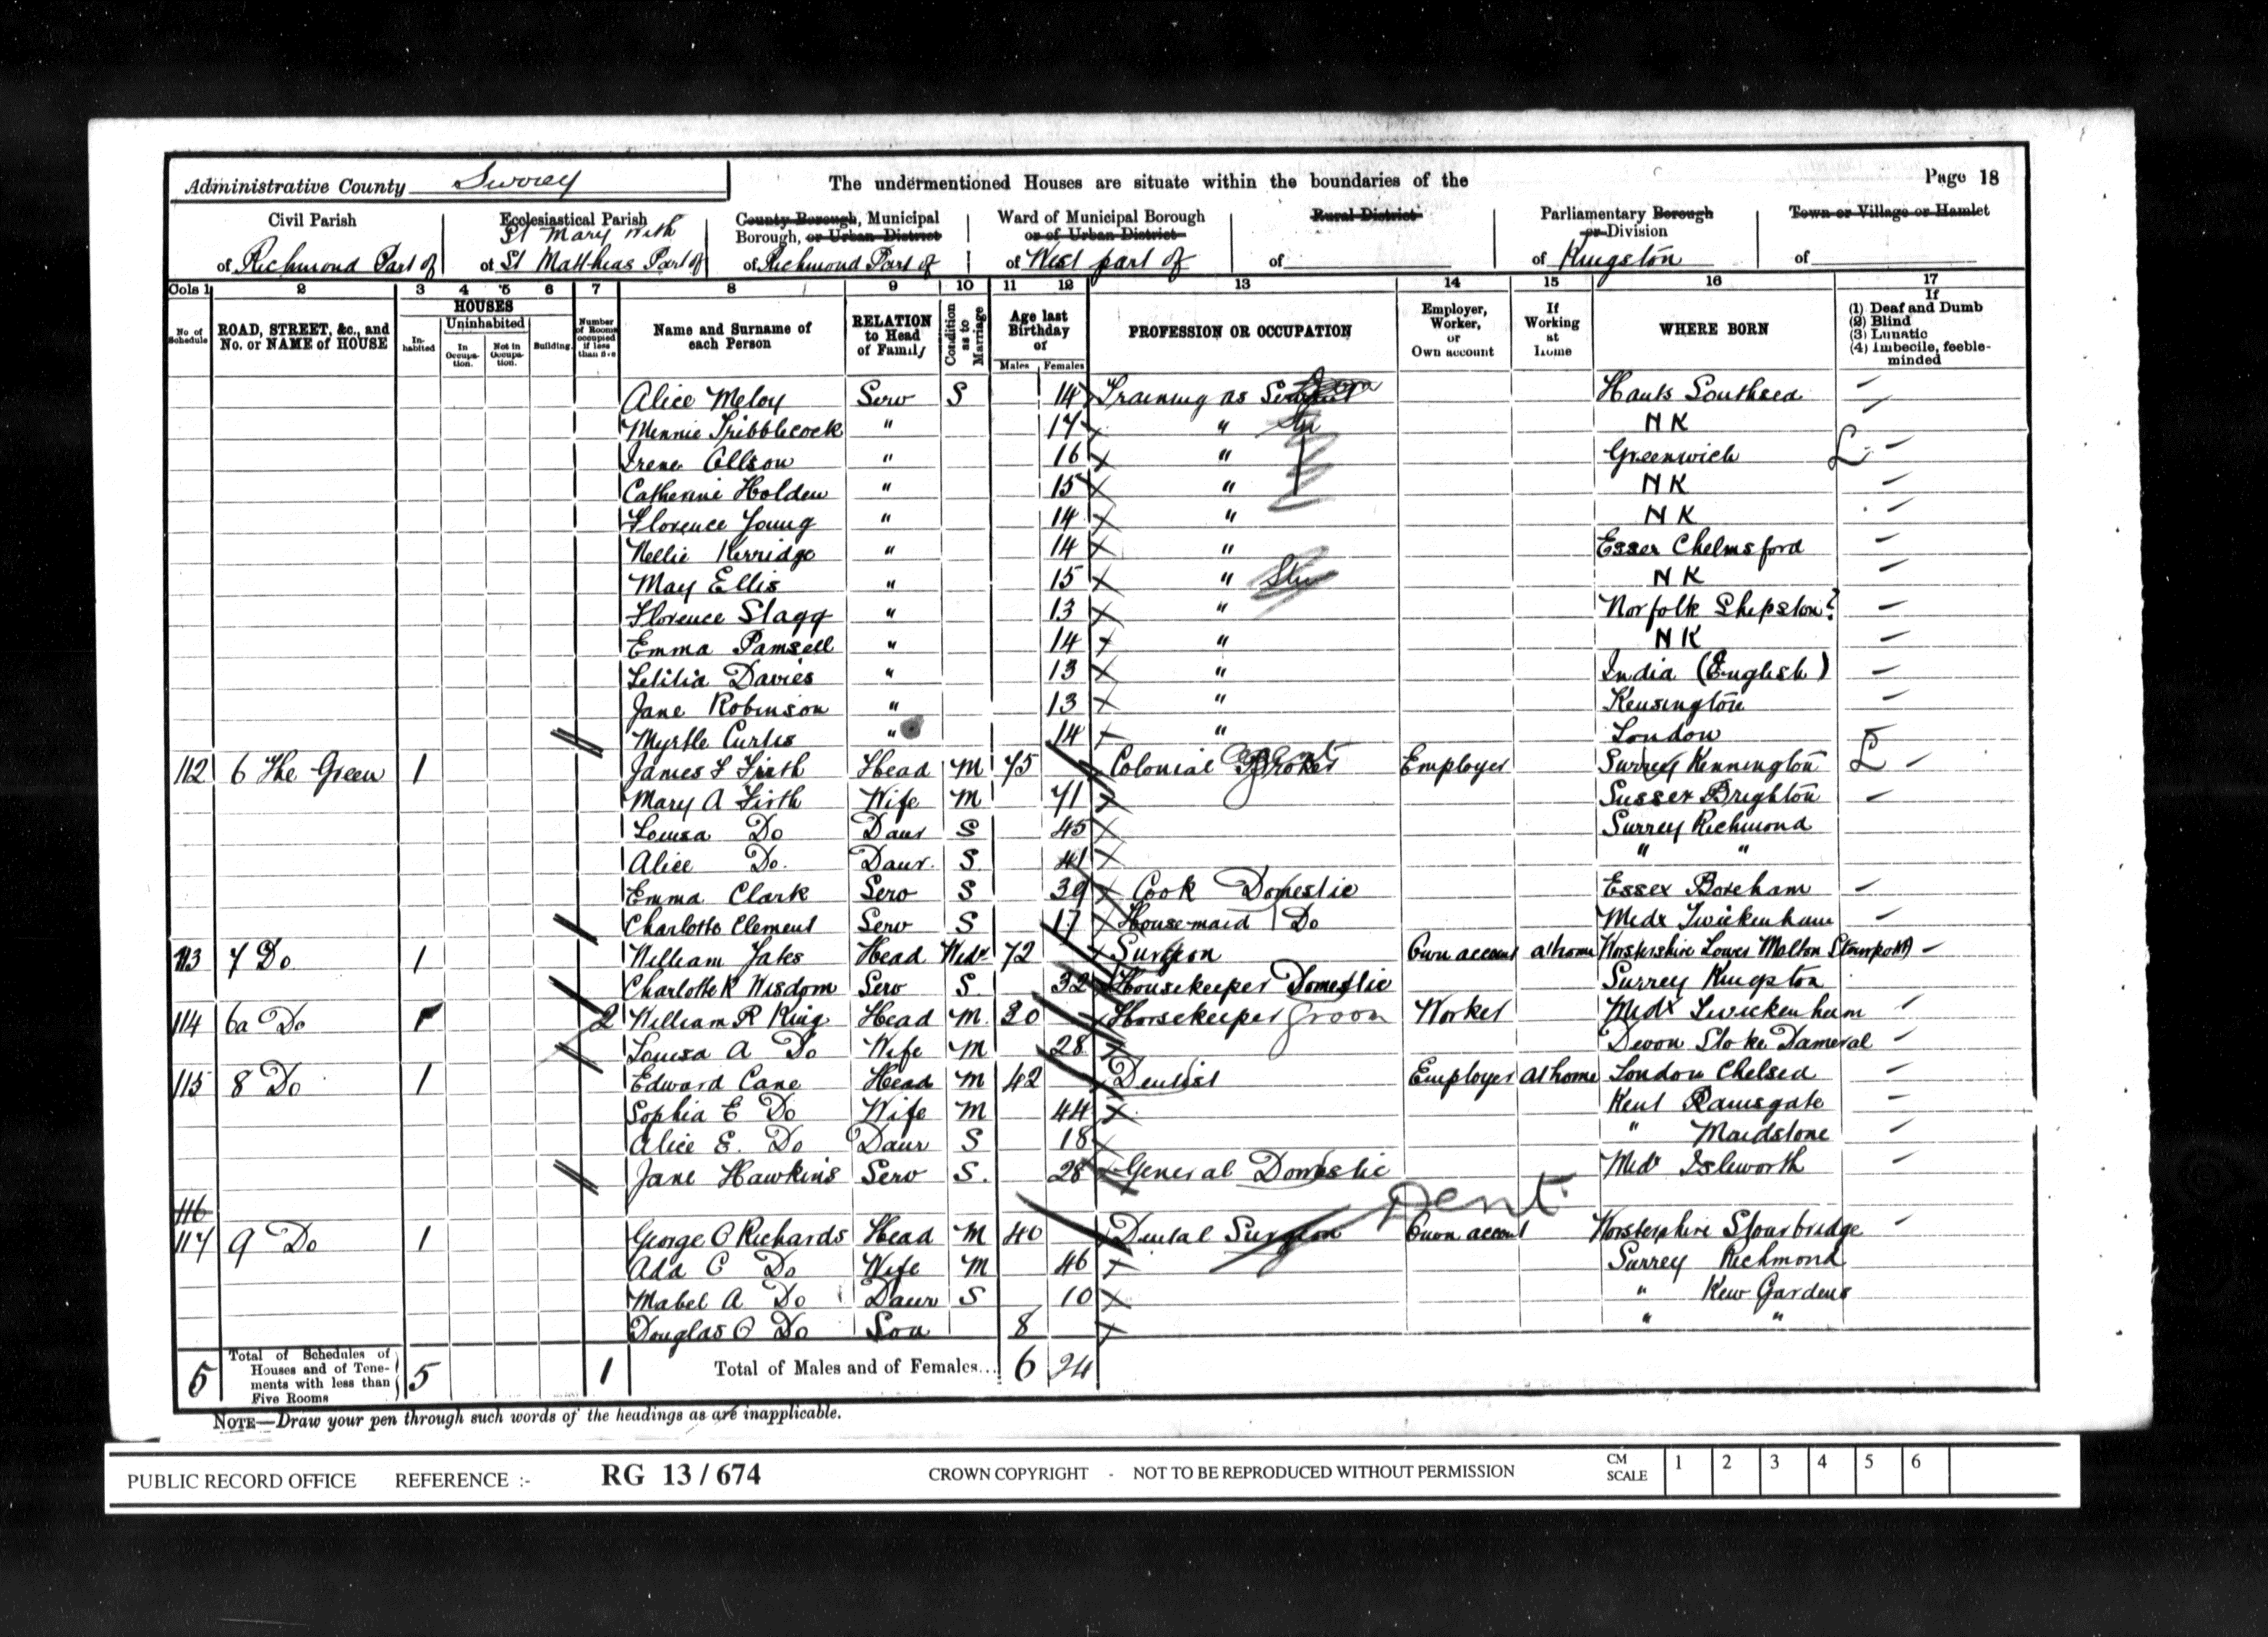 Administrative County Surrey
The undermentioned Houses are situate within the boundaries of the
Page 18
Civil Parish
of Richmond Part of
Ecclesiastical Parish
St Mary with
of St Matthias Part of
County Borough, Municipal
Borough, or Urban District
of Richmond Part of
Ward of Municipal Borough
or of Urban District
of West part of
Rural District
of
Parliamentary Borough
or Division
of Kingston
Town or Village or Hamlet
of
Cols 1 2 3 4 5 6 7 8 9 10 11 12 13 14 15 16 17
No of Schedule
ROAD, STREET, &c., and No. or NAME of HOUSE
HOUSES
In-habited
Uninhabited
In Occupa-tion.
Not in Occupa-tion.
Building.
Number of Rooms occupied if less than five
Name and Surname of each Person
RELATION to Head of Family
Condition as to Marriage
Age last Birthday of
Males Females
PROFESSION OR OCCUPATION
Employer, Worker, or Own account
If Working at Home
WHERE BORN
If
(1) Deaf and Dumb
(2) Blind
(3) Lunatic
(4) Imbecile, feeble-minded
Alice Meloy Serv S 14 Training as Hants Southsea
Minnie Tribblecock " 17 " NK
Irene Allson " 16 " Greenwich
Catherine Holden " 15 " NK
Florence Young " 14 " NK
Nellie Kerridge " 14 " Essex Chelmsford
May Ellis " 15 " NK
Florence Stagg " 13 " Norfolk Shipston?
Emma Pamsell " 14 " NK
Letitia Davies " 13 " India (English)
Jane Robinson " 13 " Kensington
Myrtle Curtis " 14 " London
112 6 The Green 1 James F Firth Head M 75 Colonial Broker Agent Employer Surrey Kennington
Mary A Firth Wife M 71 Sussex Brighton
Louisa Do Daur S 45 Surrey Richmond
Alice Do. Daur. S. 41 " "
Emma Clark Serv S 39 Cook Domestic Essex Boreham
Charlotte Clement Serv S 17 House-maid Do Midx Twickenham
113 7 Do 1 William Yates Head Widr 72 Surgeon Own account at home Worstershire Lower Malton (Stourport)
Charlotte K Wisdom Serv S. 32 Housekeeper Domestic Surrey Kingston
114 6a Do 1 2 William R King Head M. 30 Horsekeeper Groom Worker Midx Twickenham
Louisa A Do Wife M 28 Devon Stoke Dameral
115 8 Do 1 Edward Cane Head M 42 Dentist Employer At home London Chelsea
Sophia E Do Wife M 44 Kent Ramsgate
Alice E. Do Daur S 18 " Maidstone
Jane Hawkins Serv S. 28 General Domestic Midx Isleworth
116
Dent
117 9 Do 1 George O Richards Head M 40 Dental Surgeon Own account Worstershire Stourbridge
Ada C Do Wife M 46 Surrey Richmond
Mabel A Do Daur S 10 " Kew Gardens
Douglas O Do Son 8 " "
5 Total of Schedules of Houses and of Tene-ments with less than Five Rooms 5 1 Total of Males and of Females... 6 24
NOTE—Draw your pen through such words of the headings as are inapplicable.
PUBLIC RECORD OFFICE REFERENCE :- RG 13 / 674 CROWN COPYRIGHT - NOT TO BE REPRODUCED WITHOUT PERMISSION CM SCALE 1 2 3 4 5 6